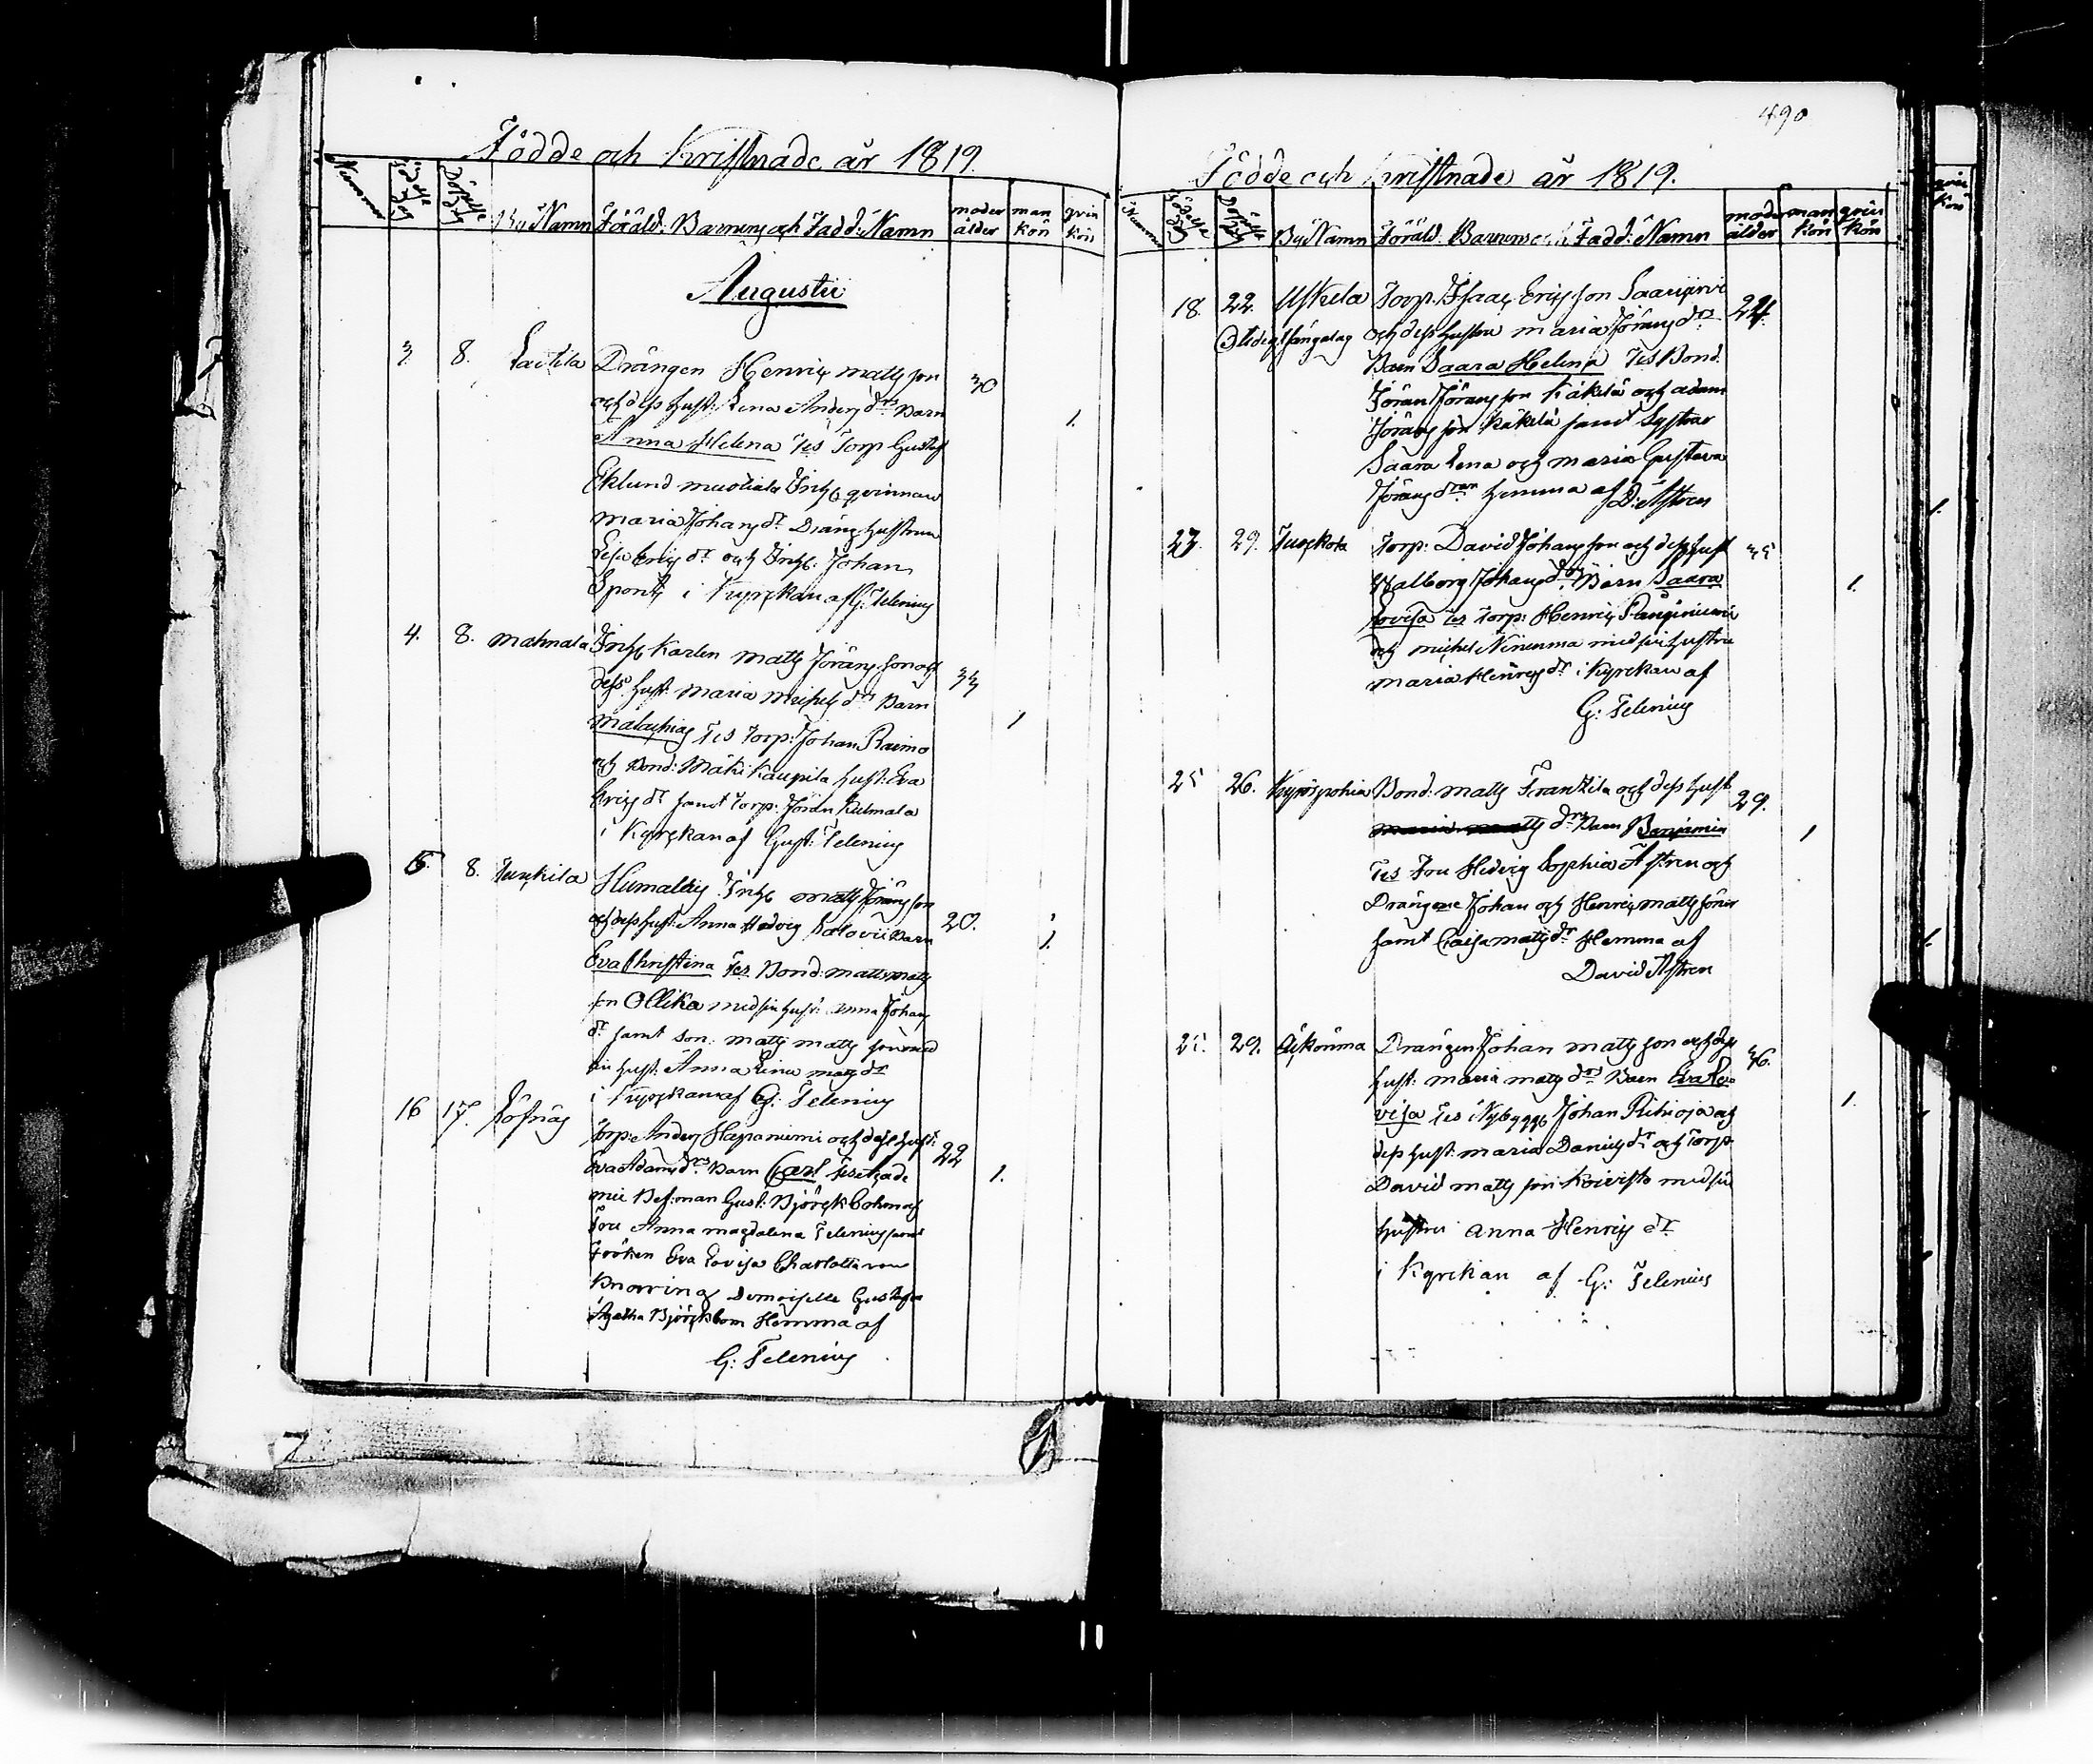 Födde och kristnade år 1819.
Nummer Födelse dag Döpelse dag By Namn Föräld: Barnens och Fadd: Namn moder ålder man kön qvin kön
Augustii
3 8. Laitila Drängen Henric Matts son 30
och dess hust: Lena Anders drs Barn
Anna Helena Tes Torp Gustaf 1.
Eklund Inh: qvinnan
Maria Johans dr Dräng hustrun
Lisa Erics dr och Inh: Johan
i Kyrckan af G: Telenius
4. 8. Mahnala Inh: Karlen Matts Jörans son och
dess hust: Maria Michels drs Barn 33
Malachias Tes Torp: Johan Raimo 1
och Bond: Mäki Kaupila hust: Eva
Erics dr samt Torp: Jöran Kulmala
i Kyrckan af Gust: Telenius
5. 8. Inh: Matts Jörans son
och dess hust: Anna Hedvig Barn 20.
Eva Christina Tes Bond: Matts Matts 1.
son Ollika med sin hust: Anna Johans
dr samt son: Matts Matts son med
sin hust: Anna Lena Matts dr
i Kyrckan af G: Telenius
16 17. Löfnäs Torp: Anders Hapaniemi och dess hust: 22
Eva Adams drs Barn Carl Tes 1.
Bef:man Gust: Björckbom
Fru Anna Magdalena Telenius samt
Fröken Eva Lovisa Charlotta von
Knorring Demoiselle Gustafva
Agatha Björckbom Hemma af
G: Telenius
490
Födde och kristnade år 1819.
Nummer Födelse dag Döpelse dag By Namn Föräld: Barnens och Fadd: Namn moder ålder man kön qvin kön
18. 22. Uskela Torp. Isaac Erics son Saarijervi 24.
och dess hustru Maria Jörans drs
Barn Saara Helena Tes Bond.
Jöran Jörans son Käkelä och Adam
Jörans son Käkelä samt Systrar
Saara Lena och Maria Gustava
Jörans dran hemma af D: Astren
23. 29. Torp: David Johans son och dess hust 35
Walborg Johans drs Barn Saara 1.
Lovisa Tes Torp: Henric
och Michel med sin hustru
Maria Henrics dr i Kyrckan af
G: Telenius
25 26. Kyröspohia Bond: Matts Frantzila och dess hust 29.
drs Barn Benjamin 1
Tes Fru Hedvig Sophia Astren och
Drängene Johan och Henric Matts söner
samt Caisa Matts dr Hemma af
David Astren
25. 29. Drängen Johan Matts son och dess 36.
hust: Maria Matts drs Barn Eva Lo-
visa Tes Nybygg: Johan Rihioja och 1.
dess hust: Maria Daniels dr och Torp
David Matts son Koivisto med sin
hustru Anna Henrics dr
i Kyrckan af G: Telenius